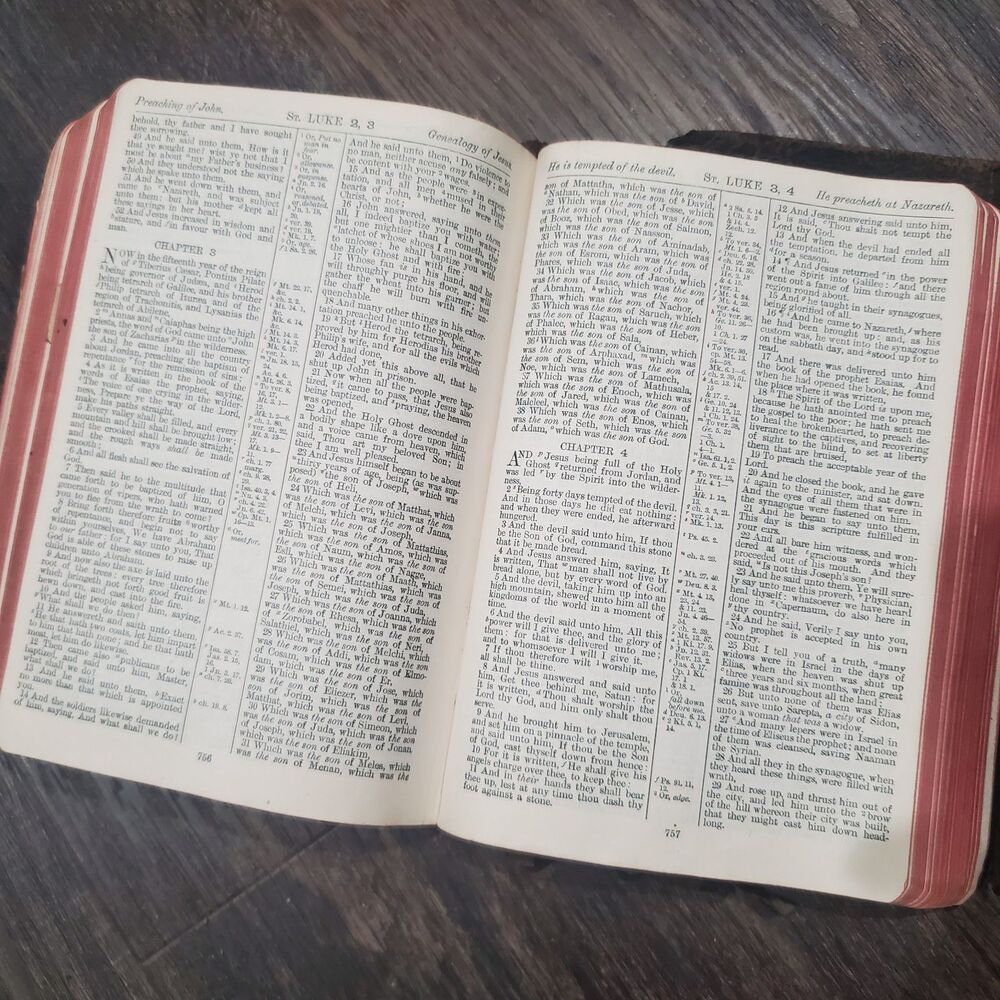 Preaching of John.
ST. LUKE 2, 3
Genealogy of Jesus
behold, thy father and I have sought
thee sorrowing.
49 And he said unto them, How is it
that ye sought me? wist ye not that I
must be about my Father's business?
50 And they understood not the saying
which he spake unto them.
51 And he went down with them, and
came to Nazareth, and was subject
unto them: but his mother kept all
these sayings in her heart.
52 And Jesus increased in wisdom and
stature, and in favour with God and
man.
CHAPTER 3
NOW in the fifteenth year of the reign
of Tiberius Cæsar, Pontius Pilate
being governor of Judæa, and Herod
being tetrarch of Galilee, and his brother
Philip tetrarch of Ituræa and of the
region of Trachonitis, and Lysanias the
tetrarch of Abilene,
2 Annas and Caiaphas being the high
priests, the word of God came unto John
the son of Zacharias in the wilderness.
3 And he came into all the country
about Jordan, preaching the baptism of
repentance for the remission of sins;
4 As it is written in the book of the
words of Esaias the prophet, saying,
The voice of one crying in the wilder-
ness, Prepare ye the way of the Lord,
make his paths straight.
5 Every valley shall be filled, and every
mountain and hill shall be brought low;
and the crooked shall be made straight,
and the rough ways shall be made
smooth;
6 And all flesh shall see the salvation of
God.
7 Then said he to the multitude that
came forth to be baptized of him, O
generation of vipers, who hath warned
you to flee from the wrath to come?
8 Bring forth therefore fruits worthy
of repentance, and begin not to say
within yourselves, We have Abraham
to our father: for I say unto you, That
God is able of these stones to raise up
children unto Abraham.
9 And now also the axe is laid unto the
root of the trees: every tree therefore
which bringeth not forth good fruit is
hewn down, and cast into the fire.
10 And the people asked him, saying,
What shall we do then?
11 He answereth and saith unto them,
He that hath two coats, let him impart
to him that hath none; and he that hath
meat, let him do likewise.
12 Then came also publicans to be
baptized, and said unto him, Master,
what shall we do?
13 And he said unto them, Exact
no more than that which is appointed
you.
14 And the soldiers likewise demanded
of him, saying, And what shall we do?
And he said unto them, Do violence to
no man, neither accuse any falsely; and
be content with your wages.
15 And as the people were in expec-
tation, and all men mused in their
hearts of John, whether he were the
Christ, or not;
16 John answered, saying unto them
all, I indeed baptize you with water;
but one mightier than I cometh, the
latchet of whose shoes I am not worthy
to unloose: he shall baptize you with
the Holy Ghost and with fire:
17 Whose fan is in his hand, and he
will throughly purge his floor, and will
gather the wheat into his garner; but
the chaff he will burn with fire un-
quenchable.
18 And many other things in his exhor-
tation preached he unto the people.
19 But Herod the tetrarch, being re-
proved by him for Herodias his brother
Philip's wife, and for all the evils which
Herod had done,
20 Added yet this above all, that he
shut up John in prison.
21 Now when all the people were bap-
tized, it came to pass, that Jesus also
being baptized, and praying, the heaven
was opened,
22 And the Holy Ghost descended in
a bodily shape like a dove upon him,
and a voice came from heaven, which
said, Thou art my beloved Son; in
thee I am well pleased.
23 And Jesus himself began to be about
thirty years of age, being (as was sup-
posed) the son of Joseph, which was
the son of Heli,
24 Which was the son of Matthat, which
was the son of Levi, which was the son
of Melchi, which was the son of Janna,
which was the son of Joseph,
25 Which was the son of Mattathias,
which was the son of Amos, which was
the son of Naum, which was the son of
Esli, which was the son of Nagge,
26 Which was the son of Maath, which
was the son of Mattathias, which was
the son of Semei, which was the son of
Joseph, which was the son of Juda,
27 Which was the son of Joanna, which
was the son of Rhesa, which was the son
of Zorobabel, which was the son of
Salathiel, which was the son of Neri,
28 Which was the son of Melchi, which
was the son of Addi, which was the son
of Cosam, which was the son of Elmo-
dam, which was the son of Er,
29 Which was the son of Jose, which
was the son of Eliezer, which was the
son of Jorim, which was the son of
Matthat, which was the son of Levi,
30 Which was the son of Simeon, which
was the son of Juda, which was the son
of Joseph, which was the son of Jonan,
which was the son of Eliakim,
31 Which was the son of Melea, which
was the son of Menan, which was the
756
He is tempted of the devil.
ST. LUKE 3, 4
He preacheth at Nazareth.
son of Mattatha, which was the son of
Nathan, which was the son of David,
32 Which was the son of Jesse, which
was the son of Obed, which was the son
of Booz, which was the son of Salmon,
which was the son of Naasson,
33 Which was the son of Aminadab,
which was the son of Aram, which was
the son of Esrom, which was the son of
Phares, which was the son of Juda,
34 Which was the son of Jacob, which
was the son of Isaac, which was the son
of Abraham, which was the son of
Thara, which was the son of Nachor,
35 Which was the son of Saruch, which
was the son of Ragau, which was the son
of Phalec, which was the son of Heber,
which was the son of Sala,
36 Which was the son of Cainan, which
was the son of Arphaxad, which was
the son of Sem, which was the son of
Noe, which was the son of Lamech,
37 Which was the son of Mathusala,
which was the son of Enoch, which was
the son of Jared, which was the son of
Maleleel, which was the son of Cainan,
38 Which was the son of Enos, which
was the son of Seth, which was the son
of Adam, which was the son of God.
CHAPTER 4
AND Jesus being full of the Holy
Ghost returned from Jordan, and
was led by the Spirit into the wilder-
ness,
2 Being forty days tempted of the devil.
And in those days he did eat nothing:
and when they were ended, he afterward
hungered.
3 And the devil said unto him, If thou
be the Son of God, command this stone
that it be made bread.
4 And Jesus answered him, saying, It
is written, That man shall not live by
bread alone, but by every word of God.
5 And the devil, taking him up into an
high mountain, shewed unto him all the
kingdoms of the world in a moment of
time.
6 And the devil said unto him, All this
power will I give thee, and the glory of
them: for that is delivered unto me;
and to whomsoever I will I give it.
7 If thou therefore wilt worship me,
all shall be thine.
8 And Jesus answered and said unto
him, Get thee behind me, Satan: for
it is written, Thou shalt worship the
Lord thy God, and him only shalt thou
serve.
9 And he brought him to Jerusalem,
and set him on a pinnacle of the temple,
and said unto him, If thou be the Son
of God, cast thyself down from hence:
10 For it is written, He shall give his
angels charge over thee, to keep thee:
11 And in their hands they shall bear
thee up, lest at any time thou dash thy
foot against a stone.
12 And Jesus answering said unto him,
It is said, Thou shalt not tempt the
Lord thy God.
13 And when the devil had ended all
the temptation, he departed from him
for a season.
14 And Jesus returned in the power
of the Spirit into Galilee: and there
went out a fame of him through all the
region round about.
15 And he taught in their synagogues,
being glorified of all.
16 And he came to Nazareth, where
he had been brought up: and, as his
custom was, he went into the synagogue
on the sabbath day, and stood up for to
read.
17 And there was delivered unto him
the book of the prophet Esaias. And
when he had opened the book, he found
the place where it was written,
18 The Spirit of the Lord is upon me,
because he hath anointed me to preach
the gospel to the poor; he hath sent me
to heal the brokenhearted, to preach de-
liverance to the captives, and recovering
of sight to the blind, to set at liberty
them that are bruised,
19 To preach the acceptable year of the
Lord.
20 And he closed the book, and he gave
it again to the minister, and sat down.
And the eyes of all them that were in
the synagogue were fastened on him.
21 And he began to say unto them,
This day is this scripture fulfilled in
your ears.
22 And all bare him witness, and won-
dered at the gracious words which
proceeded out of his mouth. And they
said, Is not this Joseph's son?
23 And he said unto them, Ye will sure-
ly say unto me this proverb, Physician,
heal thyself: whatsoever we have heard
done in Capernaum, do also here in
thy country.
24 And he said, Verily I say unto you,
No prophet is accepted in his own
country.
25 But I tell you of a truth, many
widows were in Israel in the days of
Elias, when the heaven was shut up
three years and six months, when great
famine was throughout all the land;
26 But unto none of them was Elias
sent, save unto Sarepta, a city of Sidon,
unto a woman that was a widow.
27 And many lepers were in Israel in
the time of Eliseus the prophet; and none
of them was cleansed, saving Naaman
the Syrian.
28 And all they in the synagogue, when
they heard these things, were filled with
wrath,
29 And rose up, and thrust him out of
the city, and led him unto the brow
of the hill whereon their city was built,
that they might cast him down head-
long.
757